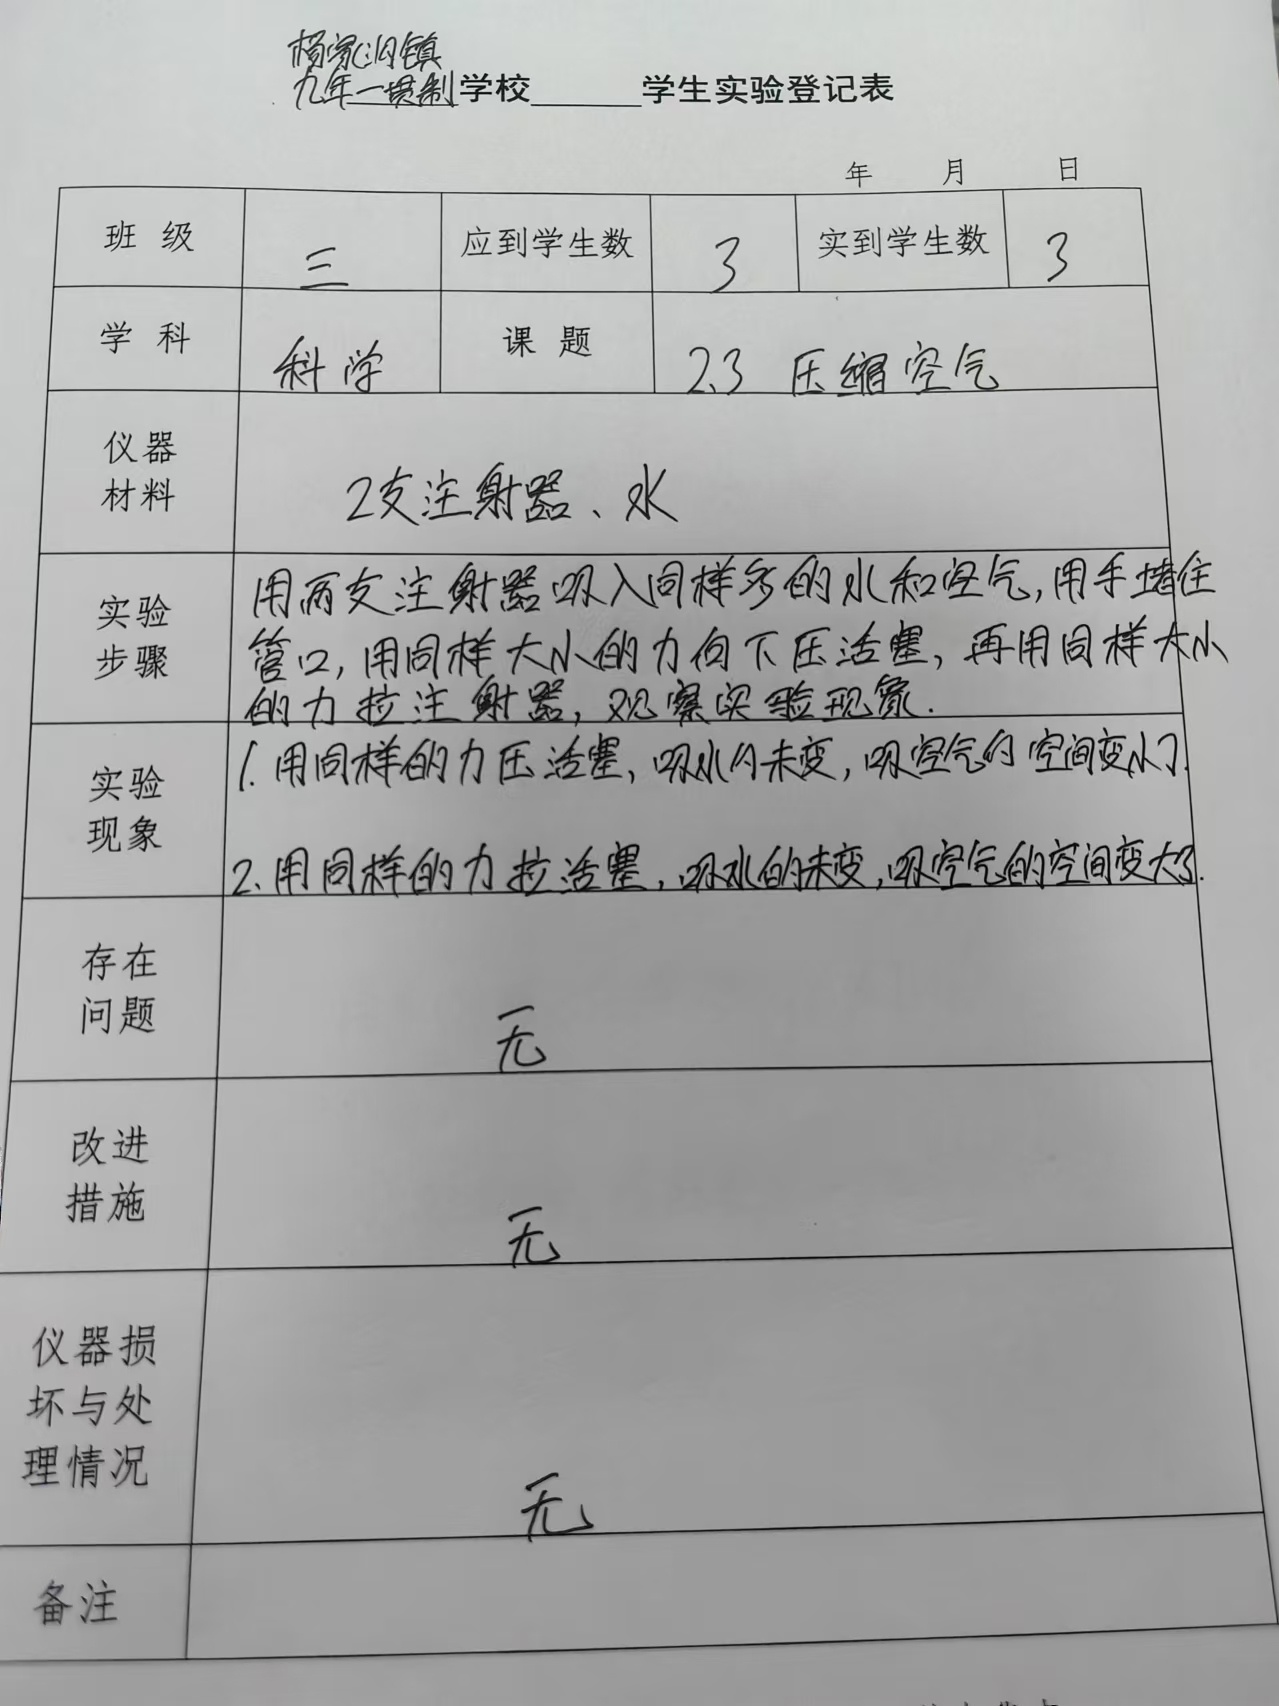 杨家沟镇
九年一贯制学校______学生实验登记表
年 月 日
班 级 三 应到学生数 3 实到学生数 3
学 科 科学 课 题 2.3 压缩空气
仪器
材料
2支注射器、水
实验
步骤
用两支注射器吸入同样多的水和空气,用手堵住
管口,用同样大小的力向下压活塞,再用同样大小
的力拉注射器,观察实验现象.
实验
现象
1. 用同样的力压活塞,吸水的未变,吸空气的空间变小了.
2. 用同样的力拉活塞,吸水的未变,吸空气的空间变大了.
存在
问题
无
改进
措施
无
仪器损
坏与处
理情况
无
备注